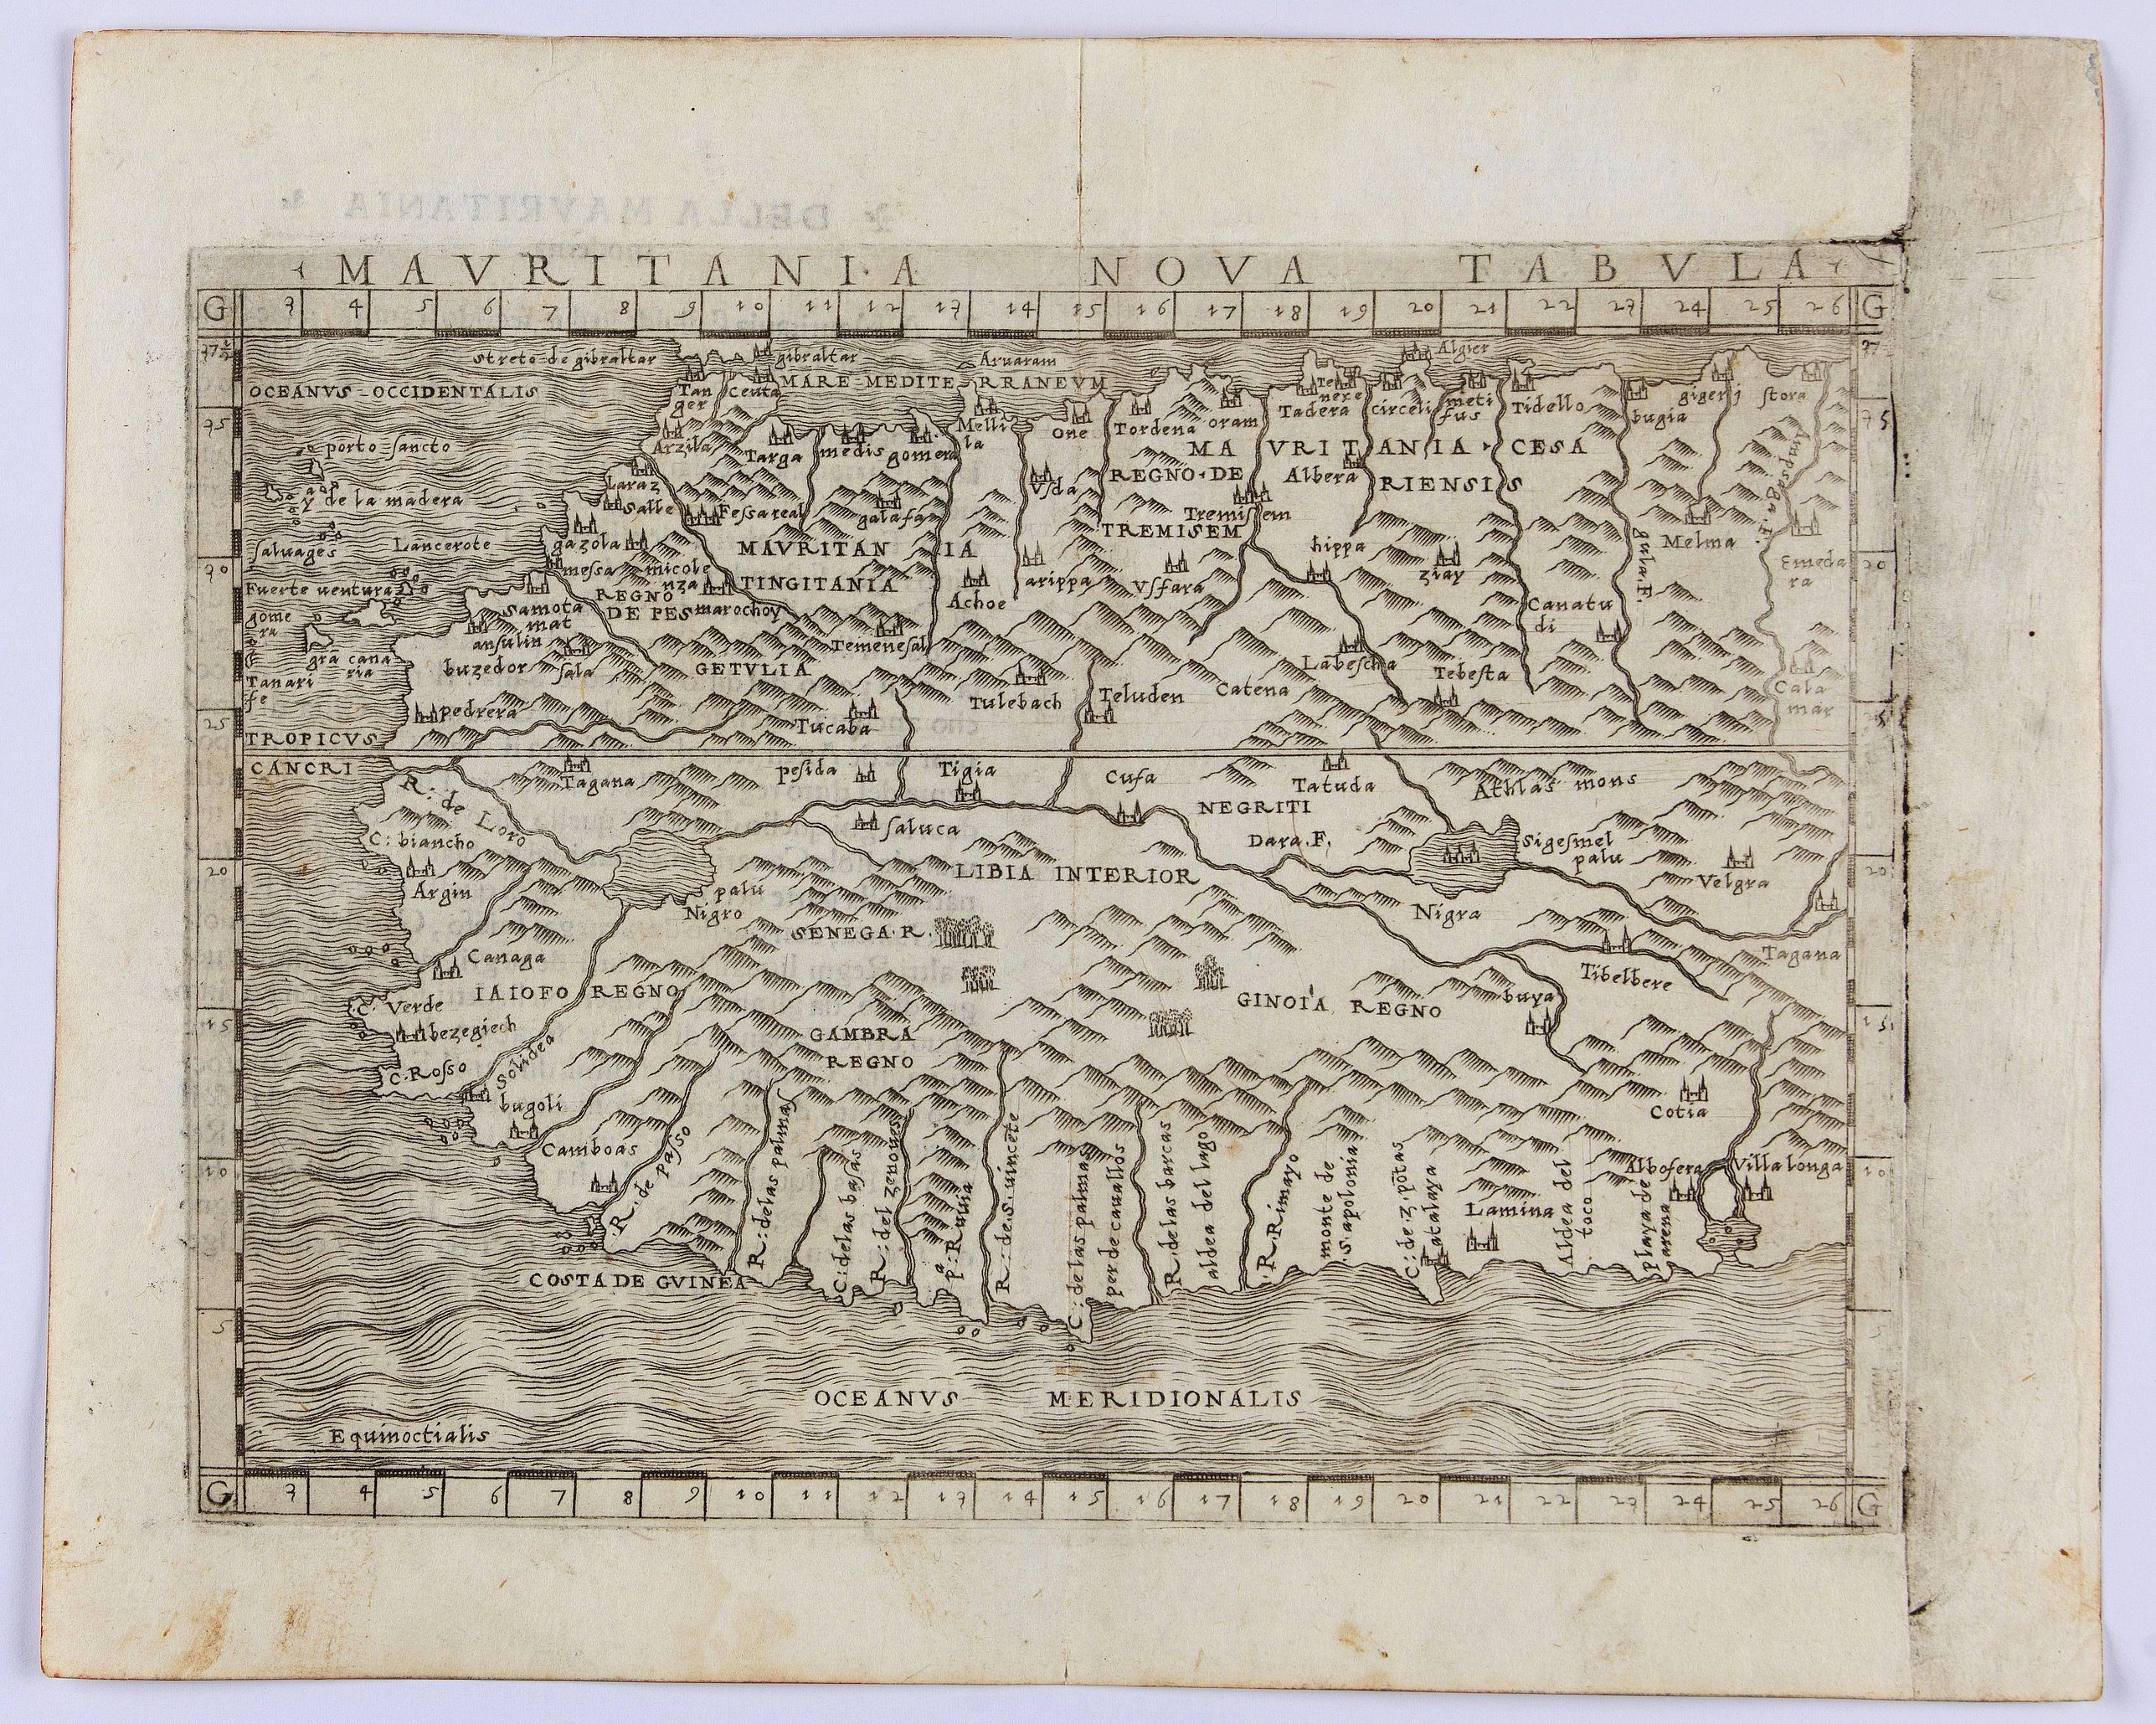 DELLA MAVRITANIA
MAVRITANIA NOVA TABVLA
G 3 4 5 6 7 8 9 10 11 12 13 14 15 16 17 18 19 20 21 22 23 24 25 26 G
Streto de gibraltar
gibraltar
Aruaram
Algier
OCEANVS OCCIDENTALIS
MARE MEDITERRANEVM
Tanger
Ceuta
Tadera
circeli
metifus
Tidello
bugia
gigerj
stora
35
porto sancto
Arzila
Targa
medis
gomera
Mellila
one
Tordena
oram
MAVRITANIA CESARIENSIS
y de la madera
Laraz
Salle
Fessa real
galafa
Vda
REGNO DE TREMISEM
Albera
Tremissem
saluages
Lancerote
gazola
MAVRITANIA TINGITANIA
hippa
ziay
gula. F.
Melma
Emedara
30
Fuerte uentura
messa
micolenza
REGNO DE FES
marochoy
Achoe
arippa
Vsfara
Canatudi
gomera
Samotamat
ansulin
Temenesal
grã canaria
Tanarife
buzedor
sala
GETVLIA
Labescha
Tebesta
Calamar
pedrera
Tulebach
Teluden
Catena
25
Tucaba
TROPICVS CANCRI
R: de Loro
Tagana
pesida
Tigia
Cufa
Tatuda
Athlas mons
NEGRITI
C: biancho
saluca
Dara. F.
Sigesmel palu
20
Argin
LIBIA INTERIOR
Velgra
20
palu Nigro
SENEGA. R.
Nigra
Canaga
Tagana
Tibelbere
C. Verde
IAIOFO REGNO
GINOIA REGNO
buya
15
bezegiech
GAMBRA REGNO
15
C. Rosso
Solidea
bugoli
Cotia
Camboas
10
Albofera
Villa longa
10
R. de Passo
R: delas palmas
C: delas baſas
R: del zenoues
R: de S. uincẽte
C: de las palmas
per de cauallos
R. delas barcas
aldea del lago
R. Rimayo
monte de S. apolonia
atalaya
Lamina
Aldea del toco
playa de arena
COSTA DE GVINEA
5
OCEANVS MERIDIONALIS
Equinoctialis
G 3 4 5 6 7 8 9 10 11 12 13 14 15 16 17 18 19 20 21 22 23 24 25 26 G